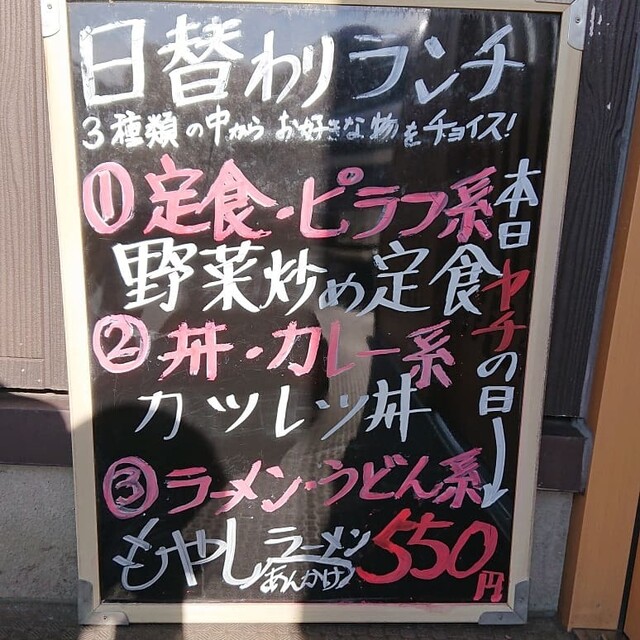 日替わりランチ
3種類の中からお好きな物をチョイス!
①定食・ピラフ系
野菜炒め定食
②丼・カレー系
カツレツ丼
③ラーメン・うどん系
もやしラーメン
あんかけ
550円
本日ヤチの日→